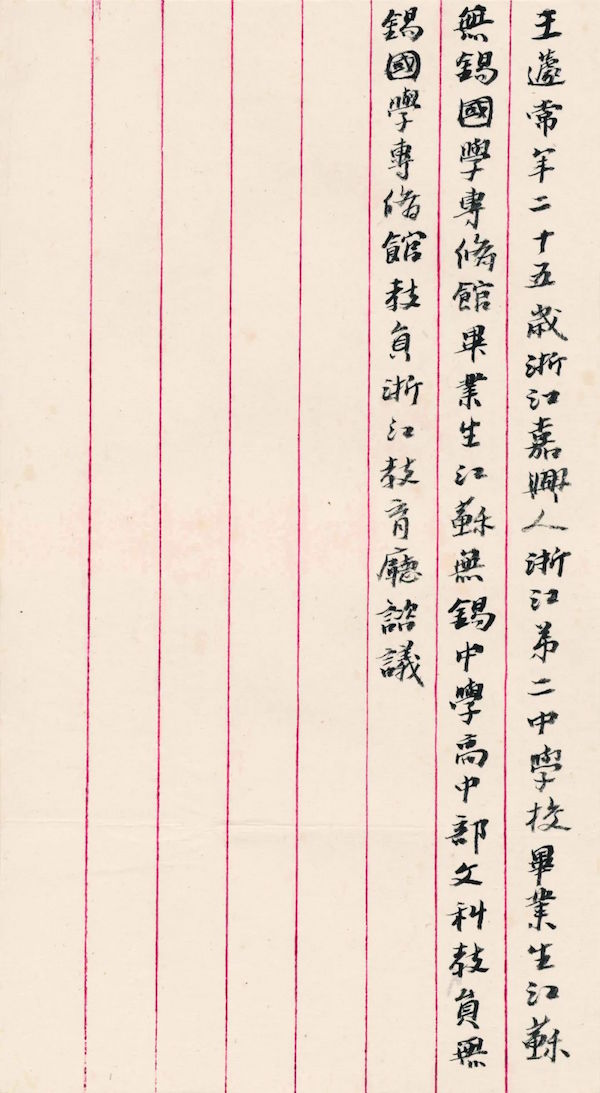 王蘧常年二十五歲浙江嘉興人浙江第二中學校畢業生江蘇
無錫國學專修館畢業生江蘇無錫中學高中部文科教員無
錫國學專修館教員浙江教育廳諮議